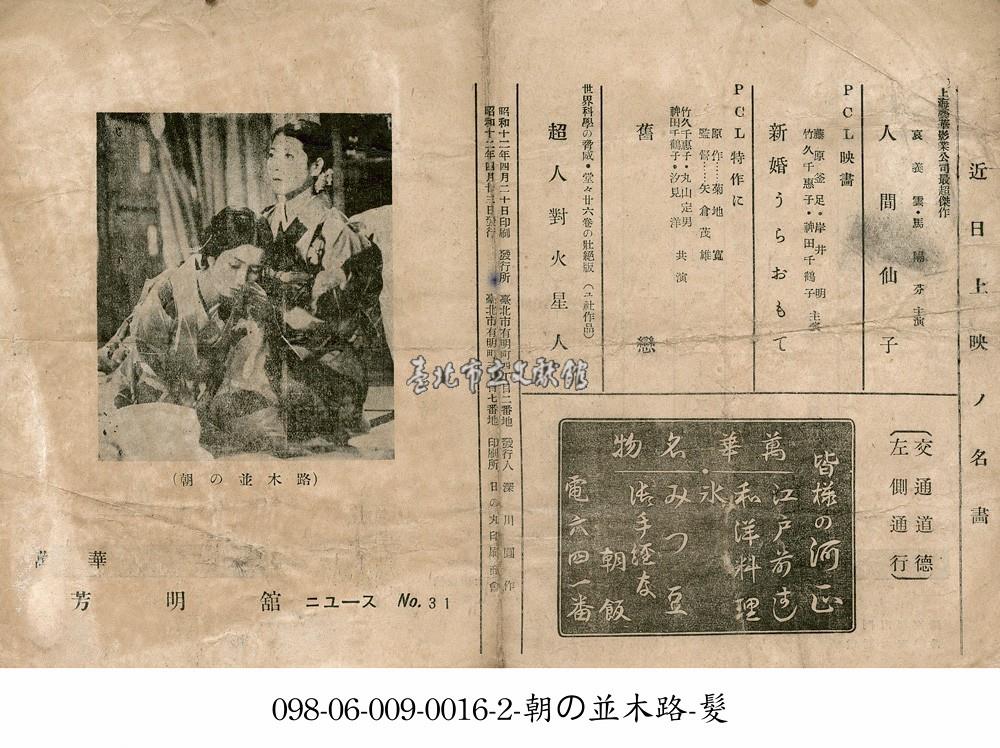 近日上映ノ名畫
上海藝華影業公司最超傑作
袁美雲・馬陽芬 主演
人間仙子
PCL映畫
藤原釜足・岸井明
竹久千惠子・神田千鶴子 主演
新婚うらおもて
PCL特作に
原作……菊地寬
監督……矢倉茂雄
竹久千惠子・丸山定男
神田千鶴子・汐見洋 共演
舊戀
世界科學の脅威・堂々廿六卷の壯絕版(ユ社作品)
超人對火星人
(交通道德
左側通行)
皆樣の河正
萬華名物
江戶前すし
和洋料理
氷
みつ豆
朝飯
電六四一番
昭和十二年四月二十日印刷 發行所 臺北市有明町
昭和十二年四月廿三日發行
發行人 深川 作
印刷所 日の丸印刷商會
(朝の並木路)
萬華
芳明舘 ニュース No.31
臺北市立文獻館
098-06-009-0016-2-朝の並木路-髮